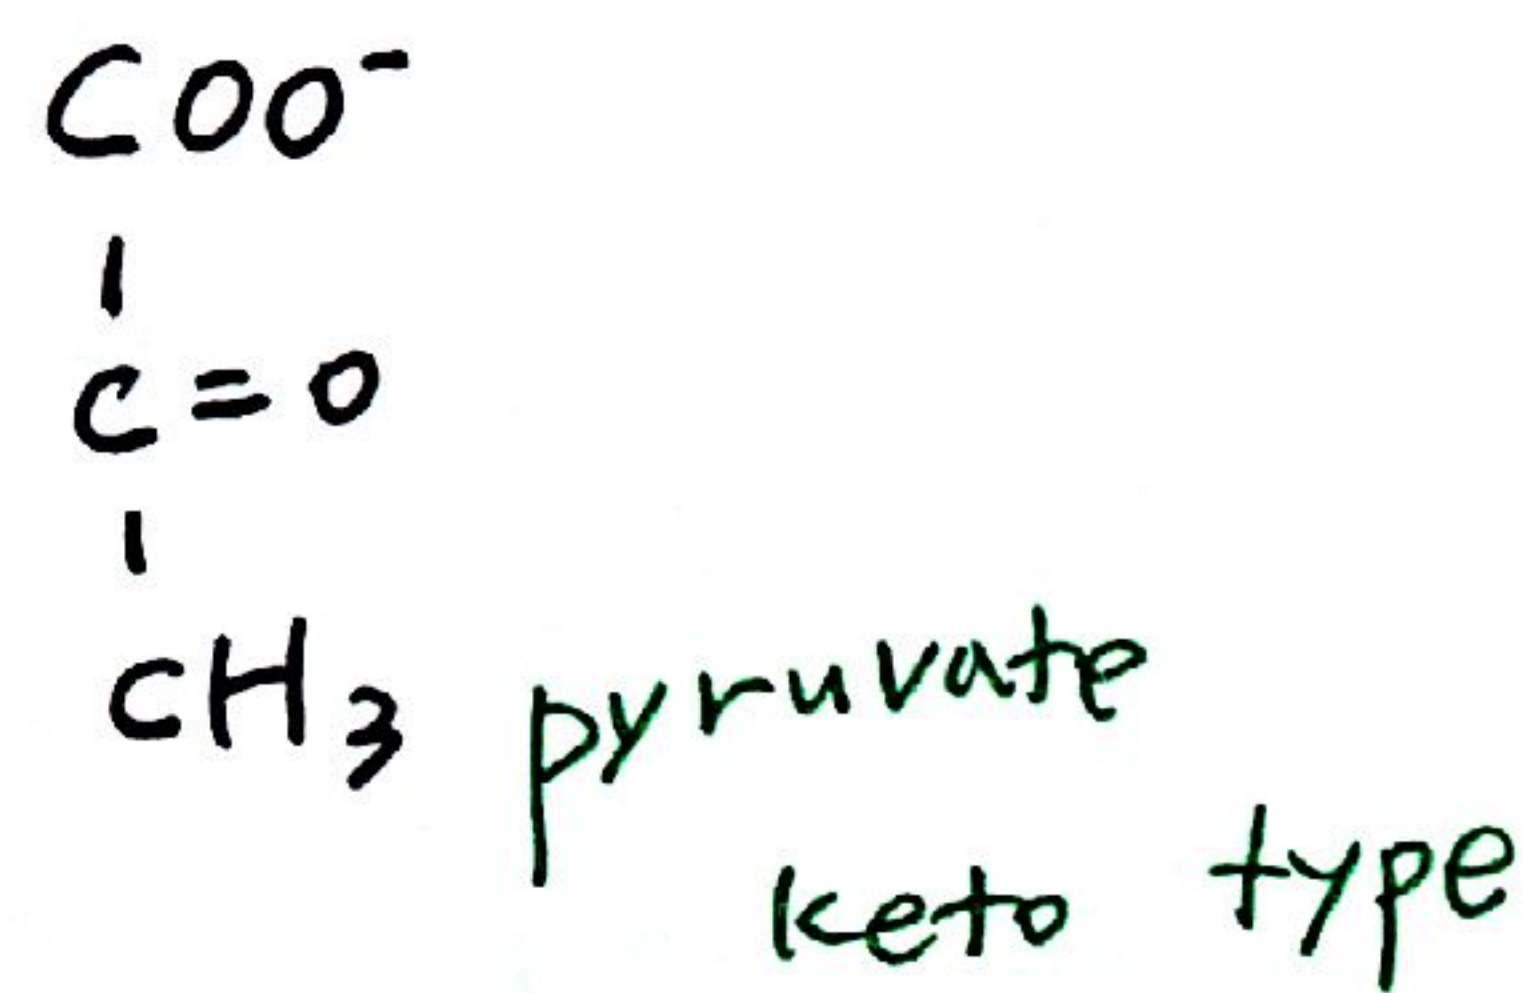 COO⁻
|
C=O
|
CH₃ pyruvate
keto type